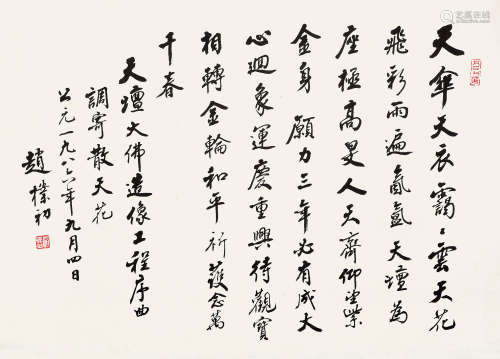 天傘天衣靄〻雲天花
飛彩雨遍氤氳天壇為
座極高旻人天齊仰望紫
金身願力三年必有成大
心迴象運慶重興待觀寶
相轉金輪和平祈護念萬
千春
天壇大佛造像工程序曲
調寄散天花
公元一九八六年九月四日
趙樸初